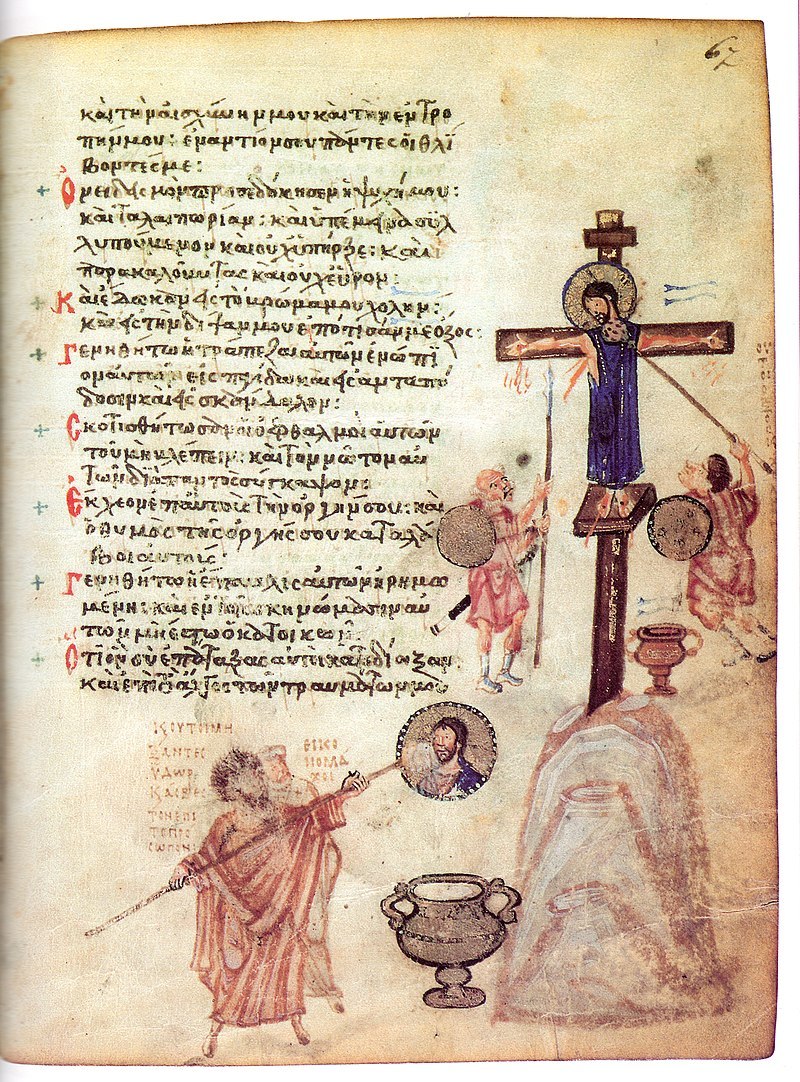 67
καὶ τὴν αἰσχύνην μου καὶ τὴν ἐντρο
πήν μου: ἐναντίον σου πάντες οἱ θλί
βοντές με:
Ὀνειδισμὸν προσεδόκησεν ἡ ψυχή μου:
καὶ ταλαιπωρίαν: καὶ ὑπέμεινα συλ
λυπούμενον καὶ οὐχ ὑπῆρξε: καὶ
παρακαλοῦντας καὶ οὐχ εὗρον:
Καὶ ἔδωκαν εἰς τὸ βρῶμά μου χολήν:
καὶ εἰς τὴν δίψαν μου ἐπότισάν με ὄξος:
Γενηθήτω ἡ τράπεζα αὐτῶν ἐνώπι
ον αὐτῶν εἰς παγίδα καὶ εἰς ἀνταπό
δοσιν καὶ εἰς σκάνδαλον:
Σκοτισθήτωσαν οἱ ὀφθαλμοὶ αὐτῶν
τοῦ μὴ βλέπειν: καὶ τὸν νῶτον αὐ
τῶν διὰ παντὸς σύγκαμψον:
Ἔκχεον ἐπ αὐτοὺς τὴν ὀργήν σου: καὶ
ὁ θυμὸς τῆς ὀργῆς σου καταλά
βοι αὐτούς:
Γενηθήτω ἡ ἔπαυλις αὐτῶν ἠρημω
μένη: καὶ ἐν τοῖς σκηνώμασιν αὐ
τῶν μὴ ἔστω ὁ κατοικῶν:
Ὅτι ὃν σὺ ἐπάταξας αὐτοὶ κατεδίωξαν:
καὶ ἐπὶ τὸ ἄλγος τῶν τραυμάτων μου
ΞΑΝΤΕΣ
ΥΔΩΡ
ΤΟ ΠΡΟ
ΣΩΠΟΝ
ΕΙΚΟ
ΝΟΜΑ
ΧΟΙ